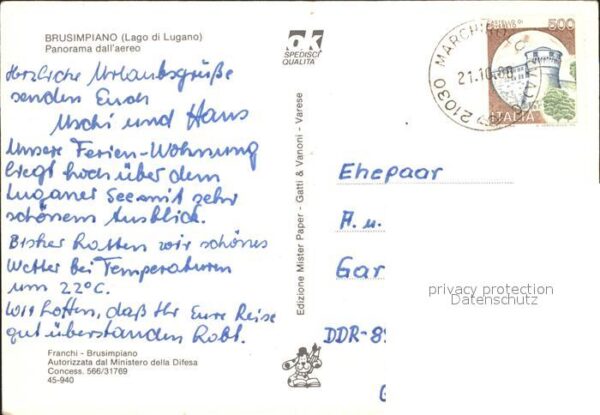 BRUSIMPIANO (Lago di Lugano)
Panorama dall'aereo
Herzliche Urlaubsgrüße
senden Euch
Uschi und Hans
Unsere Ferien-Wohnung
liegt hoch über dem
Luganer See mit sehr
schönem Ausblick.
Bisher hatten wir schönes
Wetter bei Temperaturen
um 22°C.
Wir hoffen, daß Ihr Eure Reise
gut überstanden habt.
Franchi - Brusimpiano
Autorizzata dal Ministero della Difesa
Concess. 566/31769
45-940
ok
SPEDISCI
QUALITA
Edizione Mister Paper - Gatti & Vanoni - Varese
500
ITALIA
21030 MARCHIROLO
21.10.
Ehepaar
A. u.
Gar
privacy protection
Datenschutz
DDR-89
G